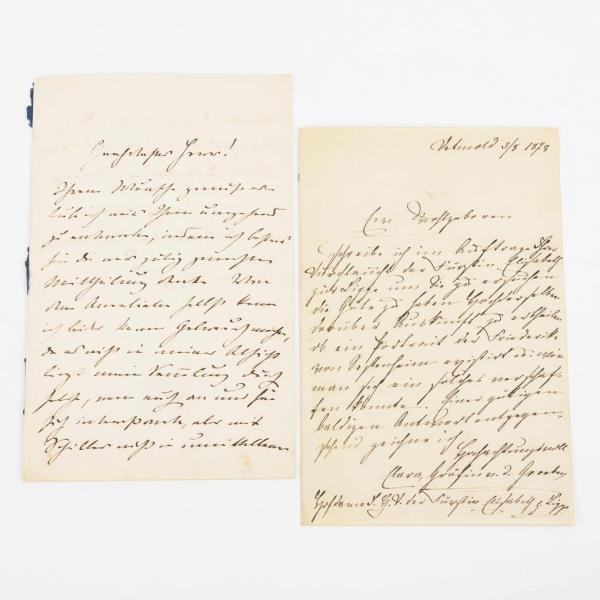 Geehrtester Herr!
Ihrem Wunsche gemäß er-
laube ich mir Ihnen umgehend
zu antworten, indem ich bestens
für die mir gütig gemachte
Mittheilung danke. Von
dem Anerbieten selbst kann
ich leider keinen Gebrauch machen,
da es nicht in meiner Absicht
liegt meine Sammlung durch
selbst, wenn auch an und für
sich interessante, aber mit
Schiller nicht in unmittelbarer
Detmold 3/8 1878
Ew. Wohlgeboren
schreibe ich im Auftrage Ihrer
Durchlaucht der Fürstin Elisabeth
zur Lippe um Sie zu ersuchen
die Güte zu haben Hochderselben
darüber Auskunft zu ertheilen
ob ein Portrait der Friederike
von Sesenheim existirt u. wie
man sich ein solches verschaf-
fen könnte. Einer gütigen
baldigen Antwort entgegen-
sehend zeichne ich
Hochachtungsvoll
Clara, Gräfin v. d.
Hofdame I. D. d. der Fürstin Elisabeth z. Lippe